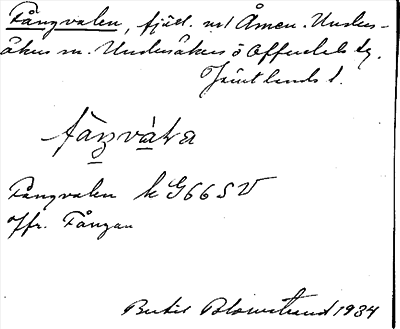 Fångvalen, fjäll. vid Åmen. Unders-
åkers sn. Undersåkers o Offerdals tg.
Jämtlands l.
fåŋvàɫa
Fångvalen k G66SV
Jfr. Fångan
Bertil Blomstrand 1934